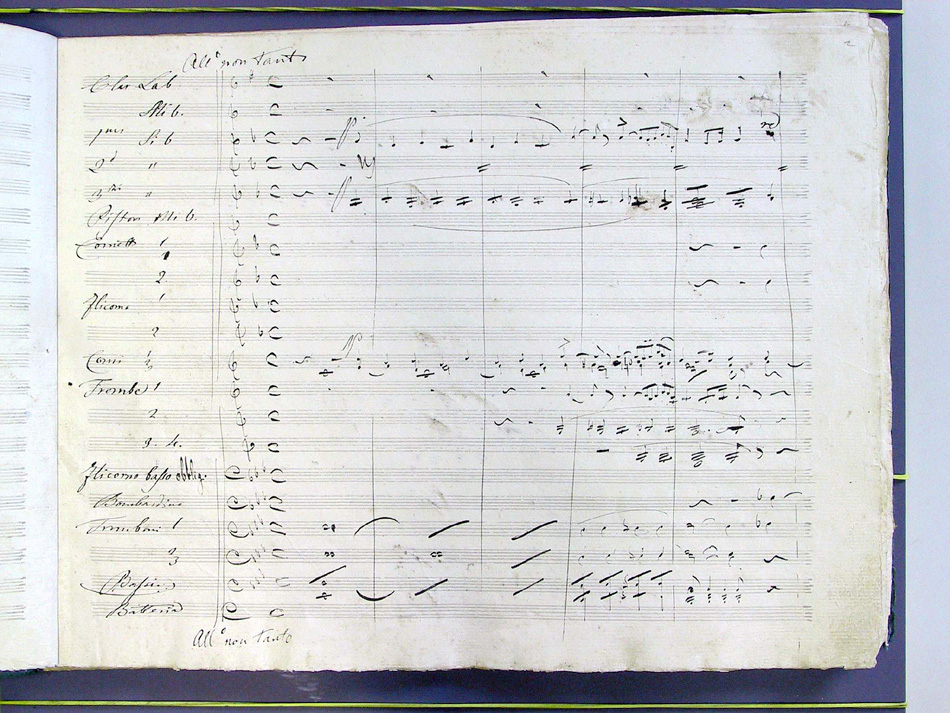 All.º non tanto
Clar Lab
Mi b.
1mi Si b
2di "
3zi "
Piston Mi b.
Cornetti 1
2
Flicorni 1
2
Corni 1/2
Trombe 1
2
3. 4.
Flicorno basso obblig.
Bombardino
Tromboni 1
2/3
Bassi
Batteria
All.º non tanto